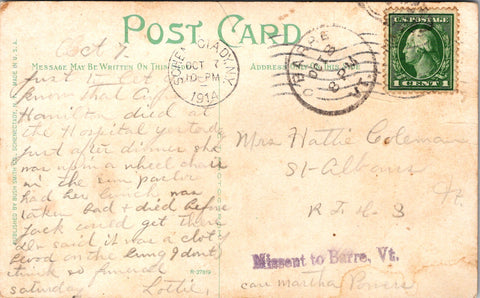 POST CARD
MESSAGE MAY BE WRITTEN ON THIS
ADDRESS
SCHENECTADY, N.Y.
OCT 7
PM
1914
BARRE
OCT 8
VT.
U.S. POSTAGE
1 CENT 1
MADE IN U.S.A.
PUBLISHED BY
R-37919
Oct 7
Just to let
know that
Hamilton died at
the Hospital yesterday
just after dinner she
was up in a wheel chair
in the sun parlor
had her lunch was
taken bad & died before
Jack could get there
Dr said it was a clot of
blood on the lung I don't
think so funeral
saturday. Lottie,
Mrs Hattie Coleman
St-Albans
Vt.
R.F.D. 3
Missent to Barre, Vt.
care martha Powers